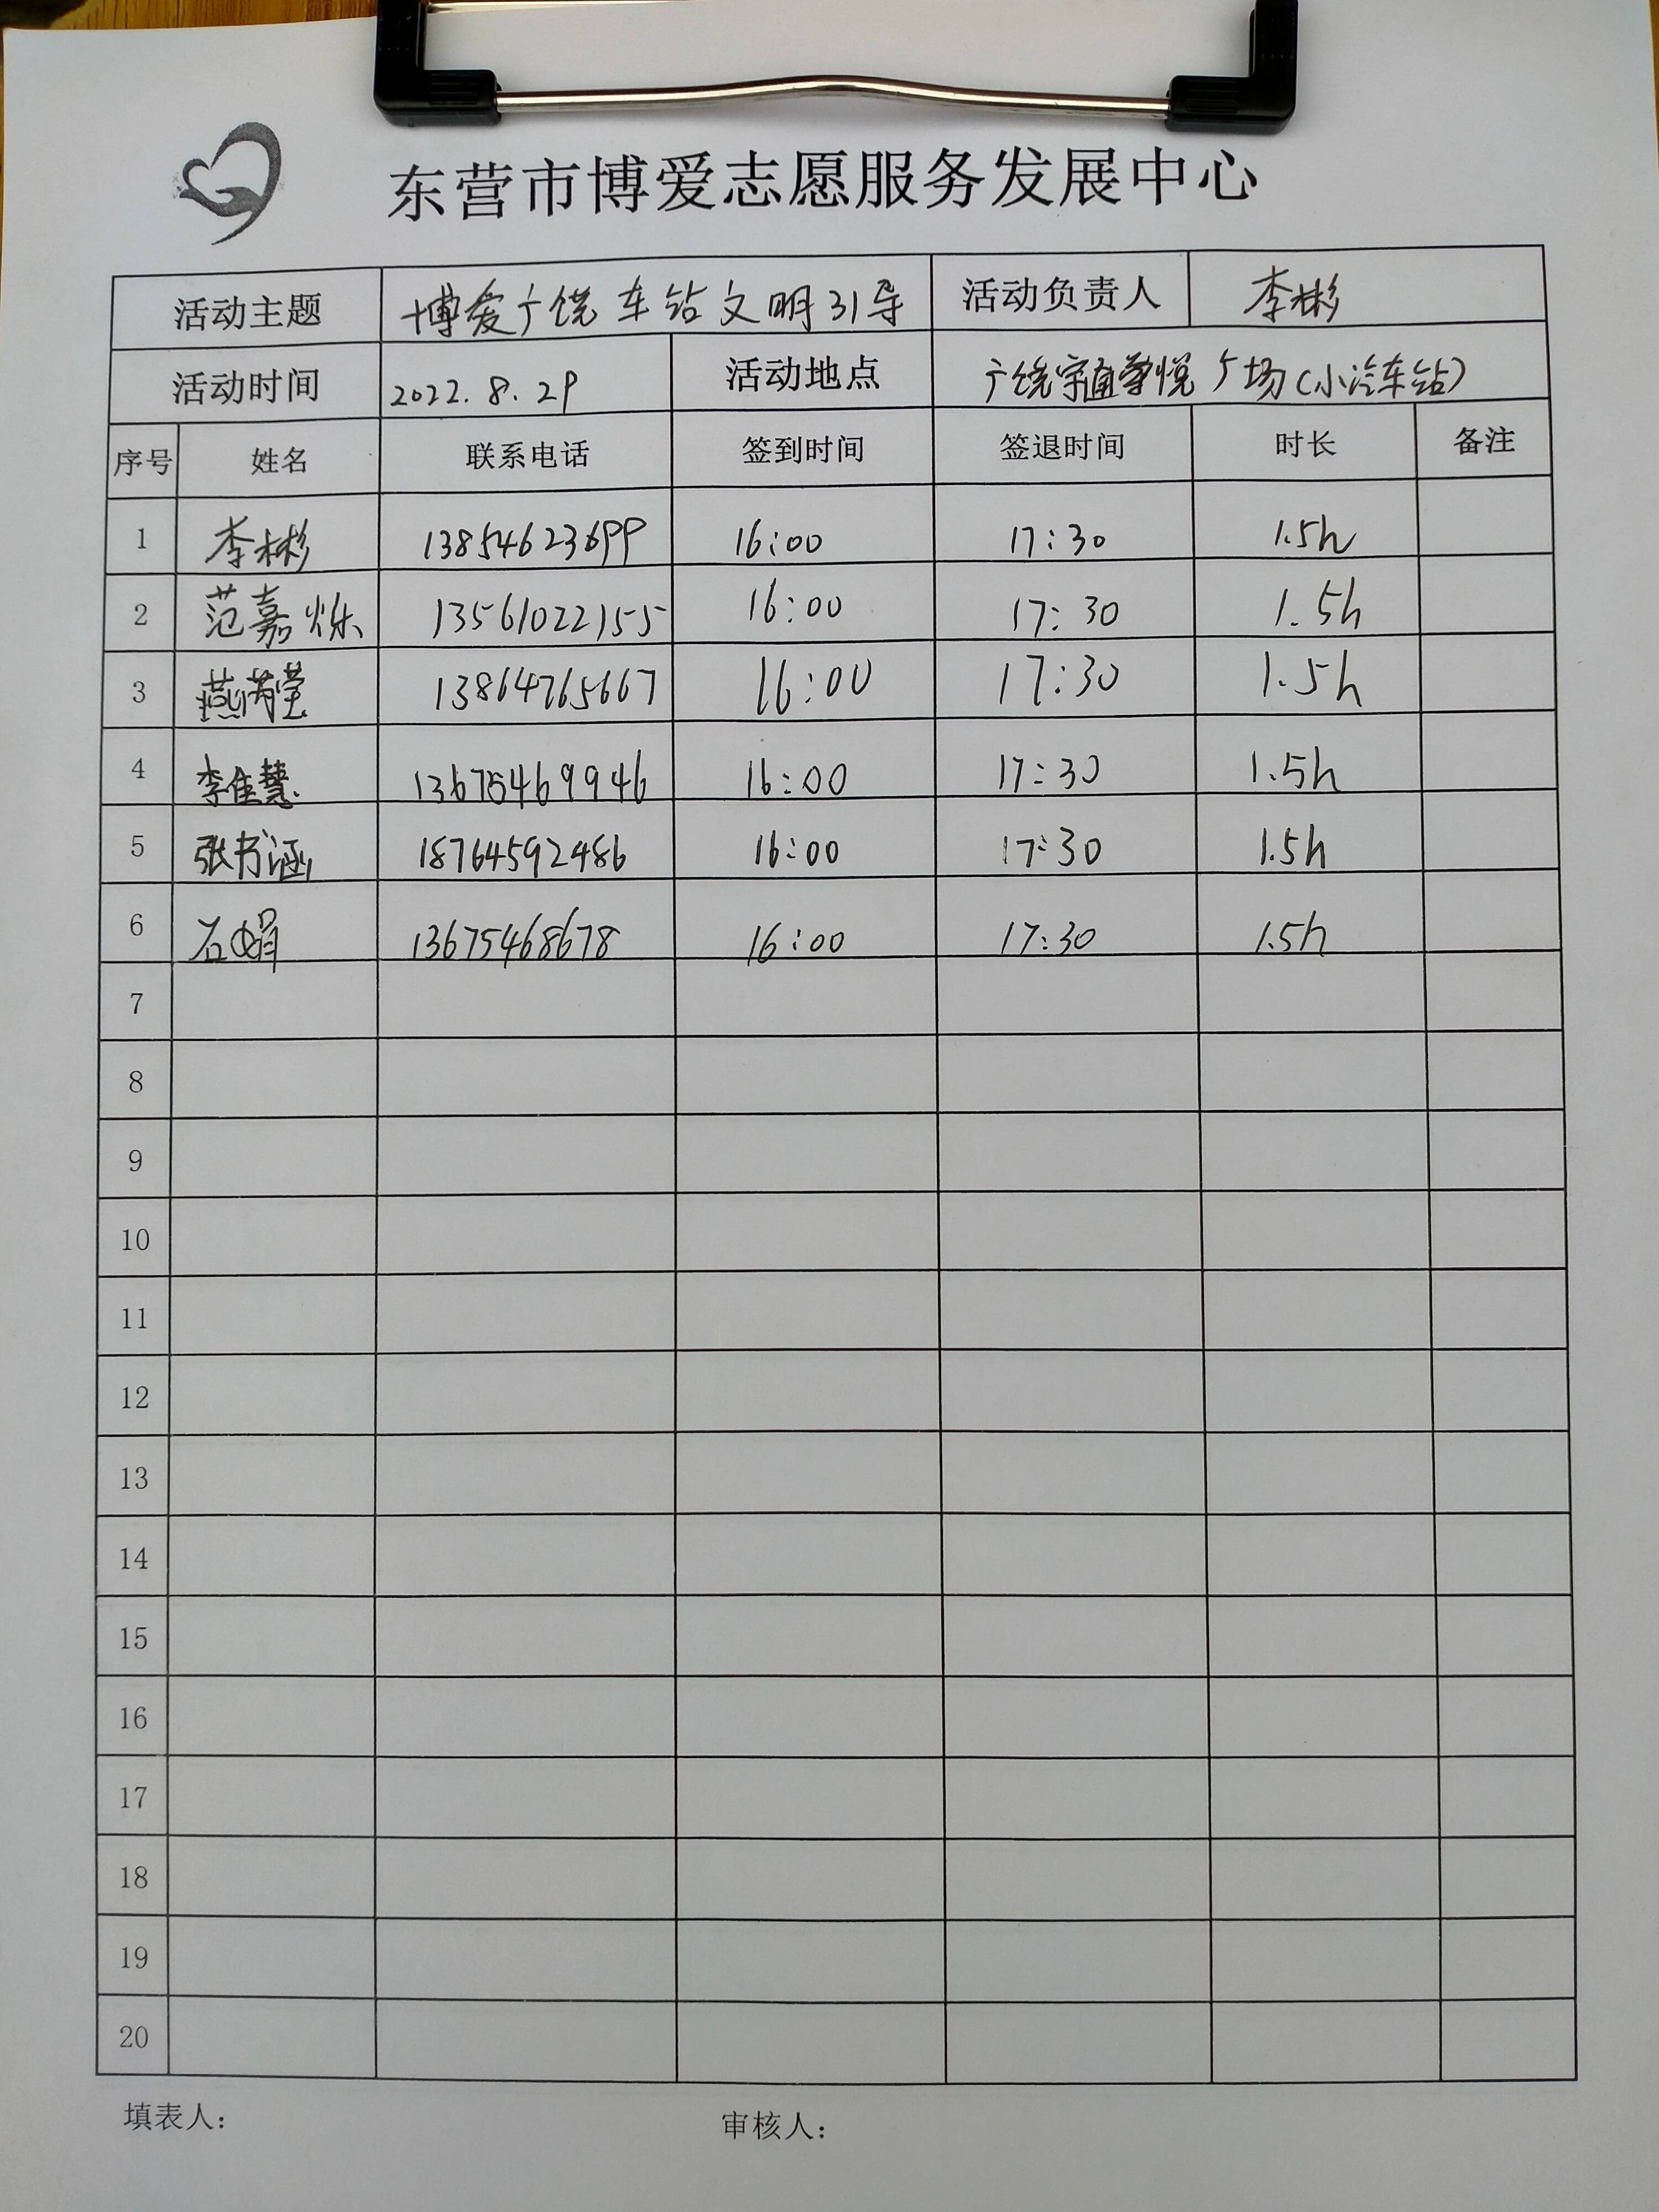 东营市博爱志愿服务发展中心
活动主题 博爱广饶车站文明引导 活动负责人 李彬
活动时间 2022.8.29 活动地点 广饶宇通尊悦广场(小汽车站)
序号 姓名 联系电话 签到时间 签退时间 时长 备注
1 李彬 13854623699 16:00 17:30 1.5h
2 范嘉烁 13561022155 16:00 17:30 1.5h
3 燕芮莹 13864765667 16:00 17:30 1.5h
4 李佳慧 13675469946 16:00 17:30 1.5h
5 张书涵 18764592486 16:00 17:30 1.5h
6 石娟 13675468678 16:00 17:30 1.5h
7
8
9
10
11
12
13
14
15
16
17
18
19
20
填表人: 审核人: